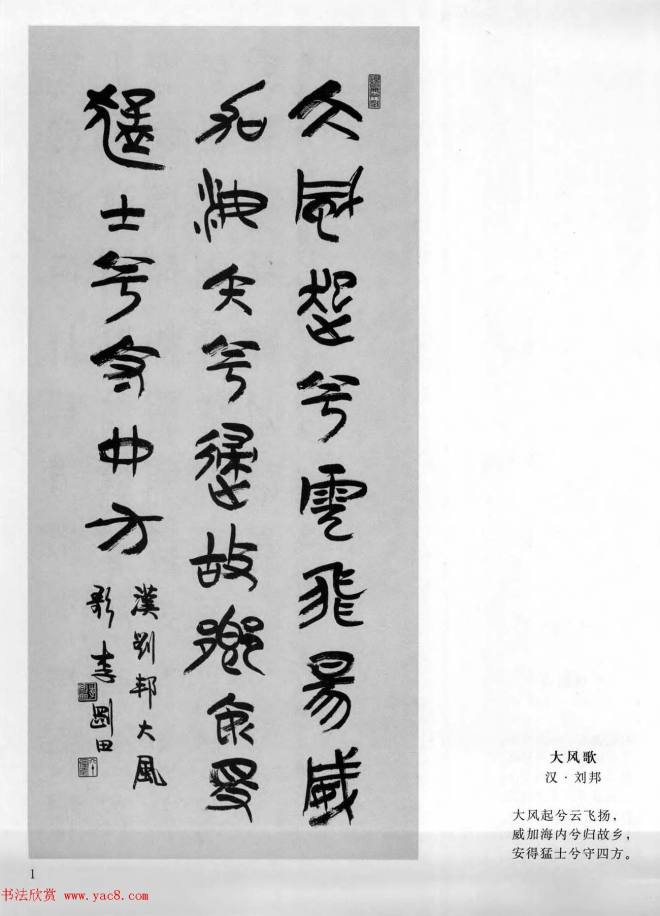 大風起兮雲飛昜威
加海内兮歸故鄉安得
猛士兮守四方
漢劉邦大風
歌李剛田
大风歌
汉·刘邦
大风起兮云飞扬，
威加海内兮归故乡，
安得猛士兮守四方。
1
书法欣赏 www.yac8.com